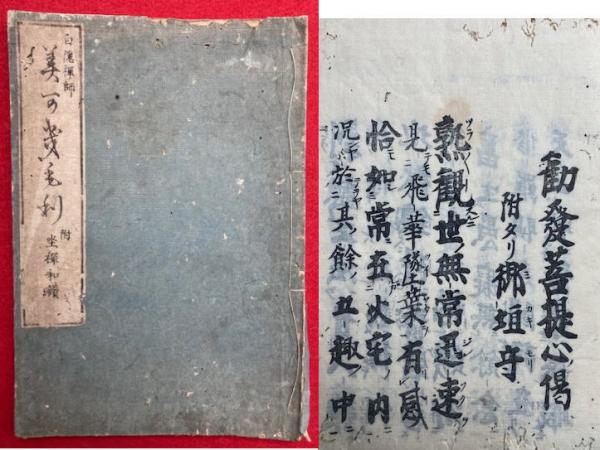 白隱禪師
美可幾毛利
附
坐禪和讚
勸發菩提心偈
附タリ御垣守
熟觀世無常迅速
見飛華墜葉有感
恰如常在火宅内
況於其餘五趣中